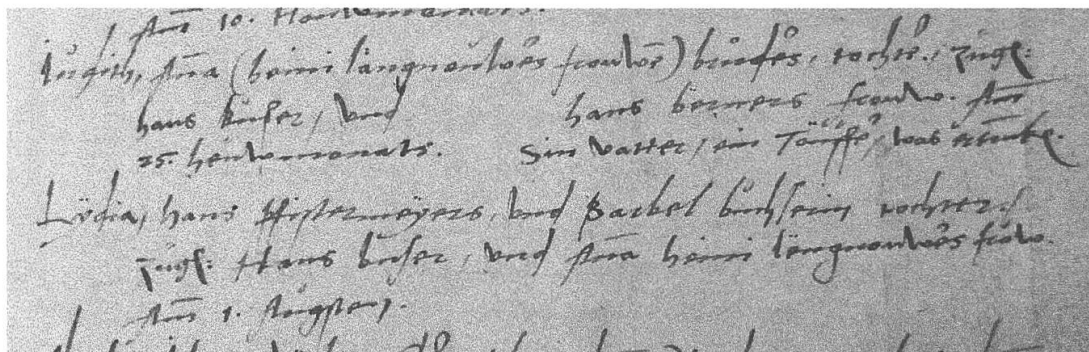 Am 10. Houwmonats.
Judith, Ana (heini längnouwers frouwē) bruders, tochter, zügē:
hans buser, und hans berners frouw. Am
25. heuwmonats. Sin vatter, ein Töuffer, was
Lydia, hans Pfistermeyers, und Barbel buchserin tochter
zügē: Hans buser, und Ana heini lengnouwers frow.
Am 1. Augsten.